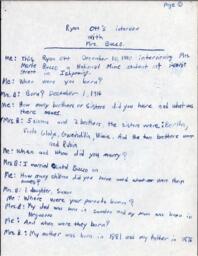 Page ①
Ryan Ott's interview
with
Mrs. Bucco.
Me: This Ryan Ott December 30, 1981 interviewing Mrs
Bucco a National Mine student of
street in Ishpeming.
Me: When were you born?
Mrs B: Born? December 1, 1916
Me: How many brothers or sisters did you have and what was
there names?
Mrs. B: 5 sisters and 2 brothers, the sisters were:
Viola, Gladys, Gwendillin, Elaine. And the two brothers were
and Robin
Me: When and whom did you marry?
Mrs B: I married Bucco in
Me: How many children did you have and what were their
names?
Mrs. B: 1 daughter, Susan
Me: Where were your parents born?
Mrs. B: My dad was born in and my mom was born in
Negaunee
Me: And when were they born?
Mrs. B: My mother was born in 1881 and my father in 1876